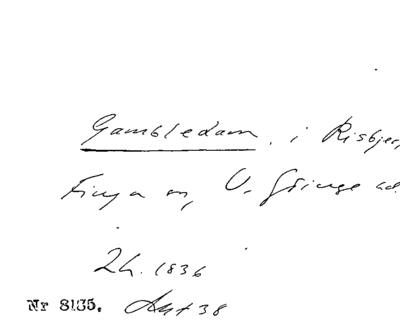 Gambledam, i Risbjer
Finja sn, V. Göinge hd.
Lh. 1836
Nr 8135. Aht 38